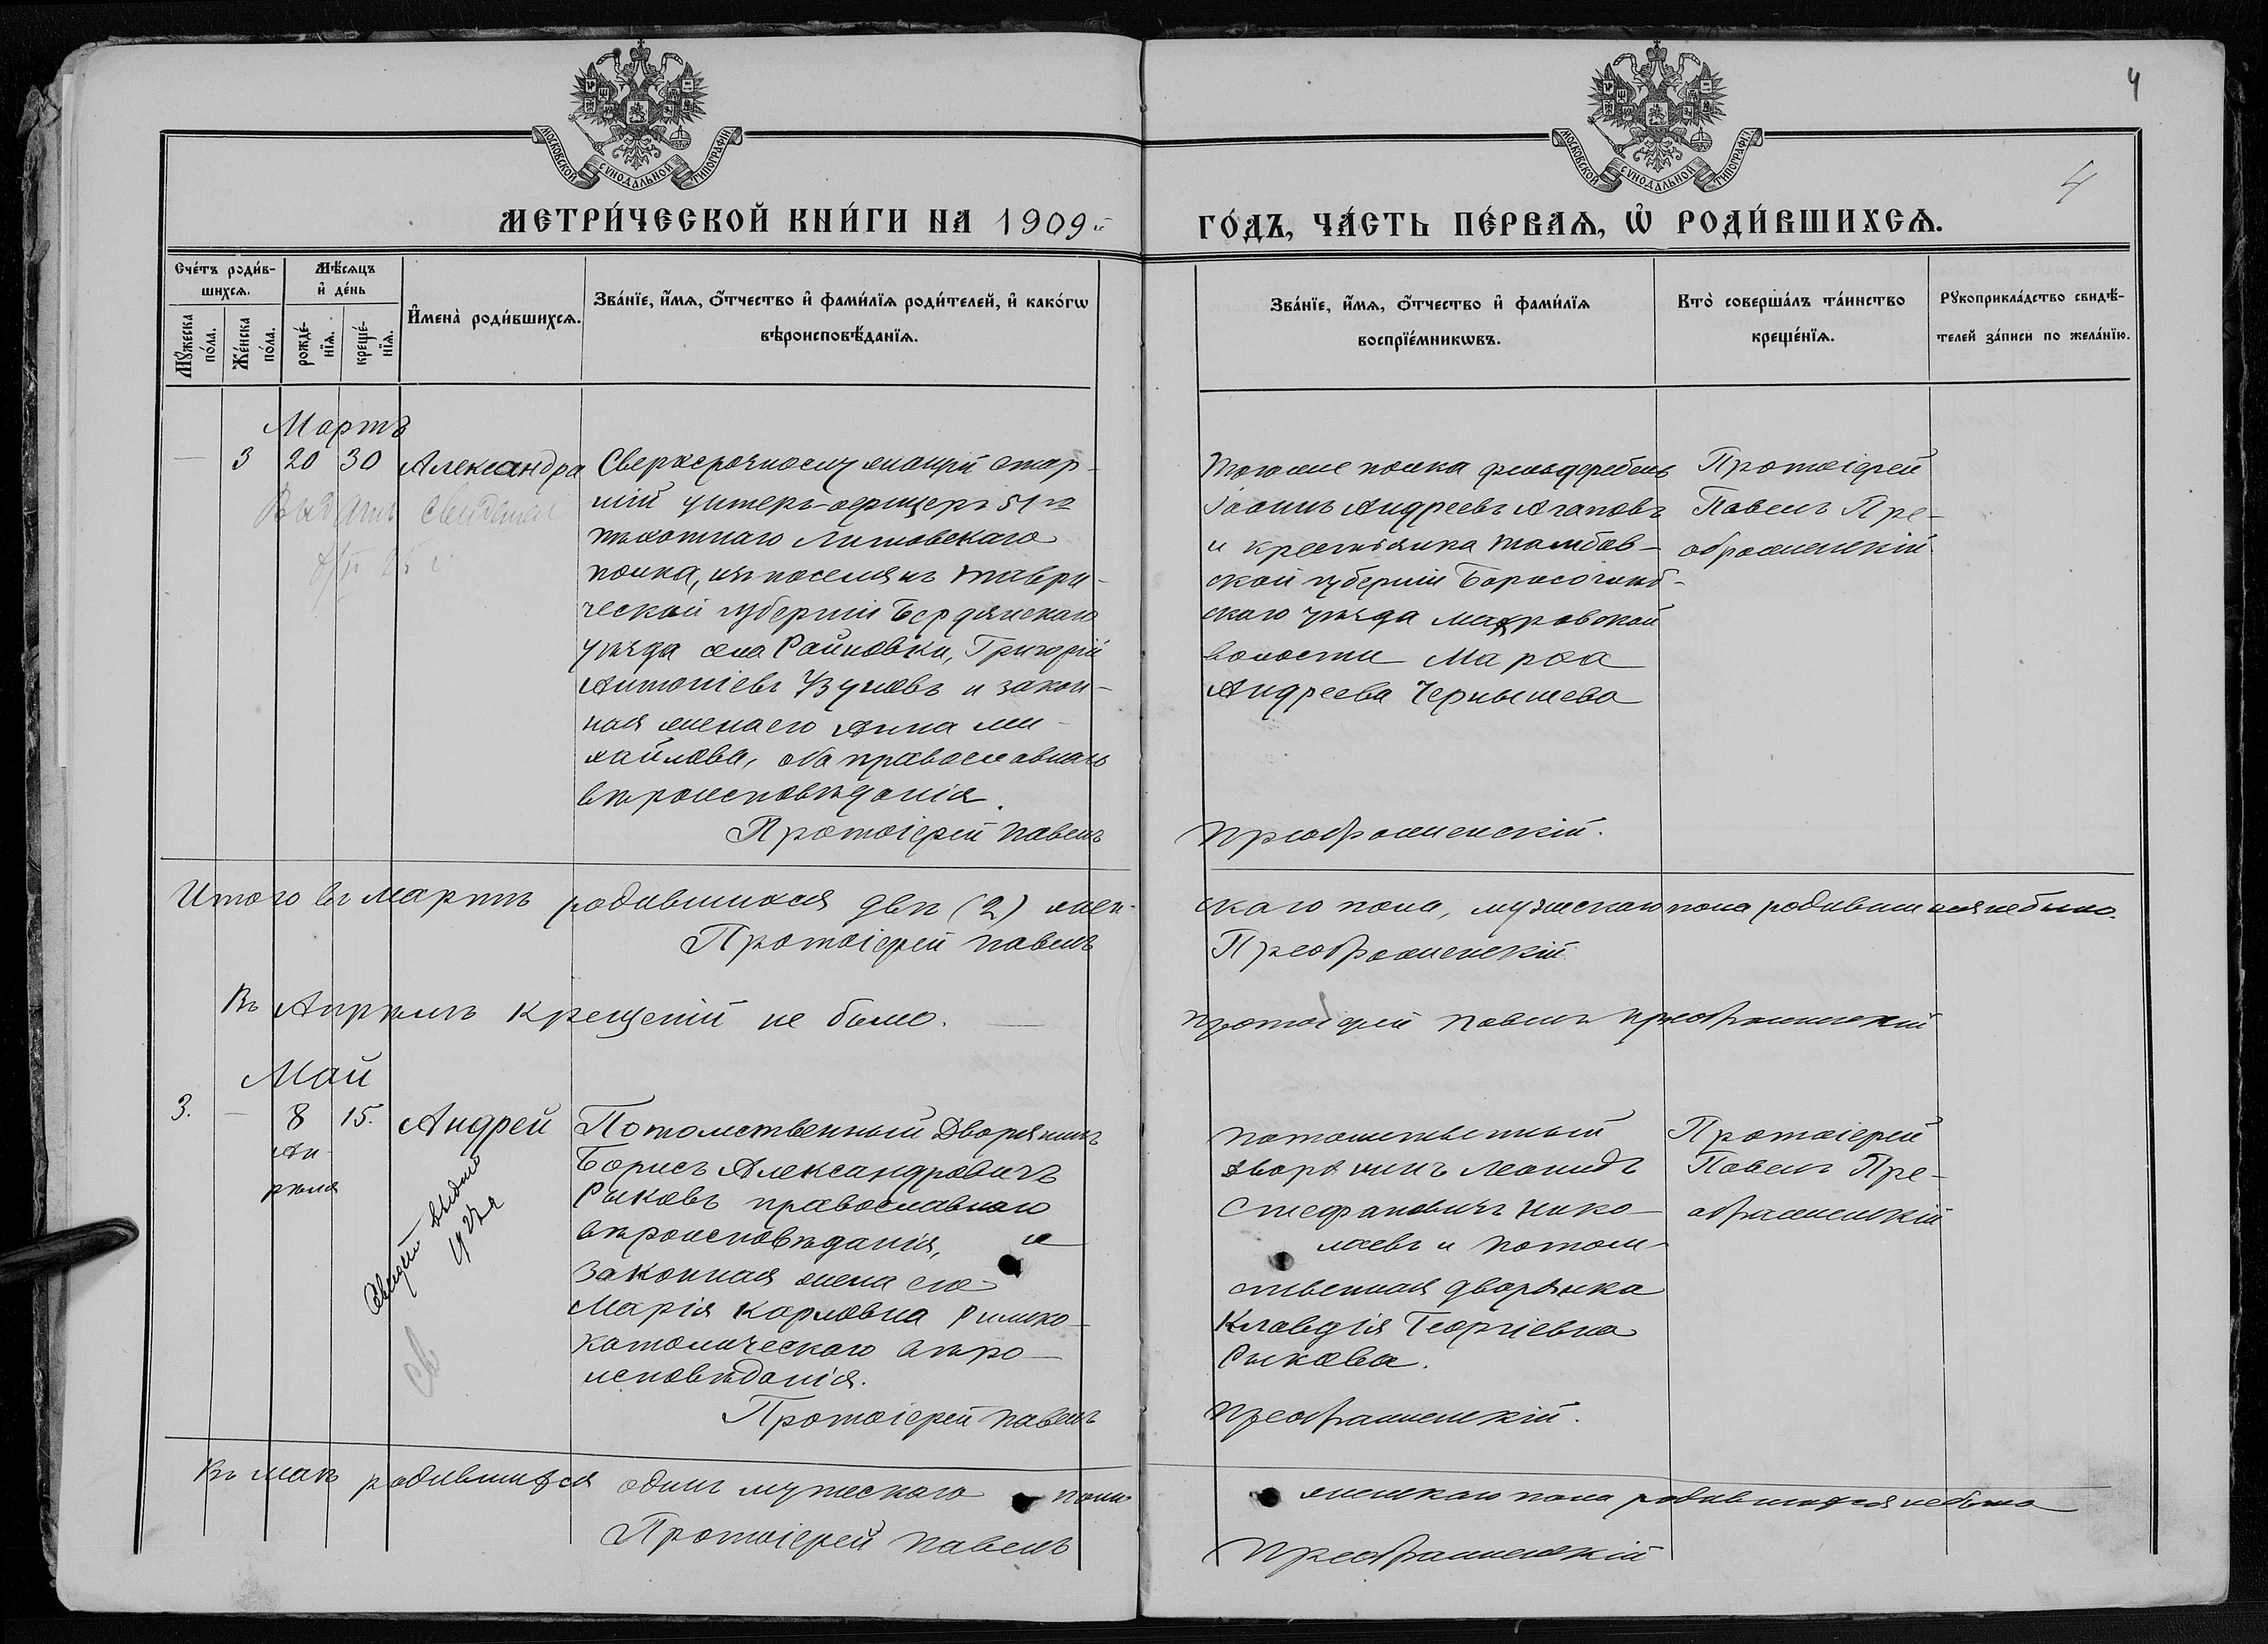 4
МОСКОВСКОЙ СѴНОДАЛЬНОЙ ТИПОГРАФІИ
МОСКОВСКОЙ СѴНОДАЛЬНОЙ ТИПОГРАФІИ
4
МЕТРИ́ЧЕСКОЙ КНИ́ГИ НА 1909й
ГО́ДЪ, ЧА́СТЬ ПЕ́РВАѦ, Ѡ҆ РОДИ́ВШИХСѦ.
Сче́тъ роди́в-
шихсѧ.
Мꙋ́жеска
по́ла.
Же́нска
по́ла.
Мѣ́сѧцъ
и҆ де́нь
рожде́-
нїѧ.
креще́-
нїѧ.
И҆мена̀ роди́вшихсѧ.
Зва́нїе, и҆́мѧ, ѻ҆́тчество и҆ фами́лїѧ роди́телей, и҆ како́гѡ
вѣроисповѣ́данїѧ.
Зва́нїе, и҆́мѧ, ѻ҆́тчество и҆ фами́лїѧ
воспрїе́мникѡвъ.
Кто̀ соверша́лъ та́инство
креще́нїѧ.
Рꙋкоприкла́дство свидѣ́-
телей за́писи по жела́нїю.
Мартъ
— 3 20 30 Александра
Выдана свидетел
Сверхсрочнослужащій стар-
шій унтеръ-офицеръ 51го
пѣхотнаго Литовскаго
полка, изъ поселянъ Таври-
ческой губерніи Бердянскаго
уѣзда села Райновки, Григорій
Антоніевъ Узуновъ и закон-
ная жена его Анна Ми-
хайлова, оба православнаго
вѣроисповѣданія.
Протоіерей Павелъ
Тогоже полка фельдфебель
Іоаннъ Андреевъ Агаповъ
и крестьянка Тамбов-
ской губерніи Борисоглѣб-
скаго уѣзда Макаровской
волости Марѳа
Андреева Чернышева
Преображенскій.
Протоіерей
Павелъ Пре-
ображенскій
Итого въ мартѣ родившихся двѣ (2) жен-
скаго пола, мужескаго пола родившихся не было.
Протоіерей Павелъ
Преображенскій
Въ Апрѣлѣ крещеній не было. —
Протоіерей Павелъ Преображенскій
Май
3. — 8 15. Андрей
Ап-
рѣля
выдано
Потомственный Дворянинъ
Борисъ Александровичъ
Рыковъ православнаго
вѣроисповѣданія, и
законная жена его
Марія Карловна Римско-
католическаго вѣро-
исповѣданія.
Протоіерей Павелъ
Потомственный
дворянинъ Леонидъ
Стефановичъ Нико-
лаевъ и потом-
ственная дворянка
Клавдія Георгіевна
Рыкова.
Преображенскій.
Протоіерей
Павелъ Пре-
ображенскій
Въ маѣ родившихся одинъ мужескаго пола
женскаго пола родившихся не было
Протоіерей Павелъ
Преображенскій